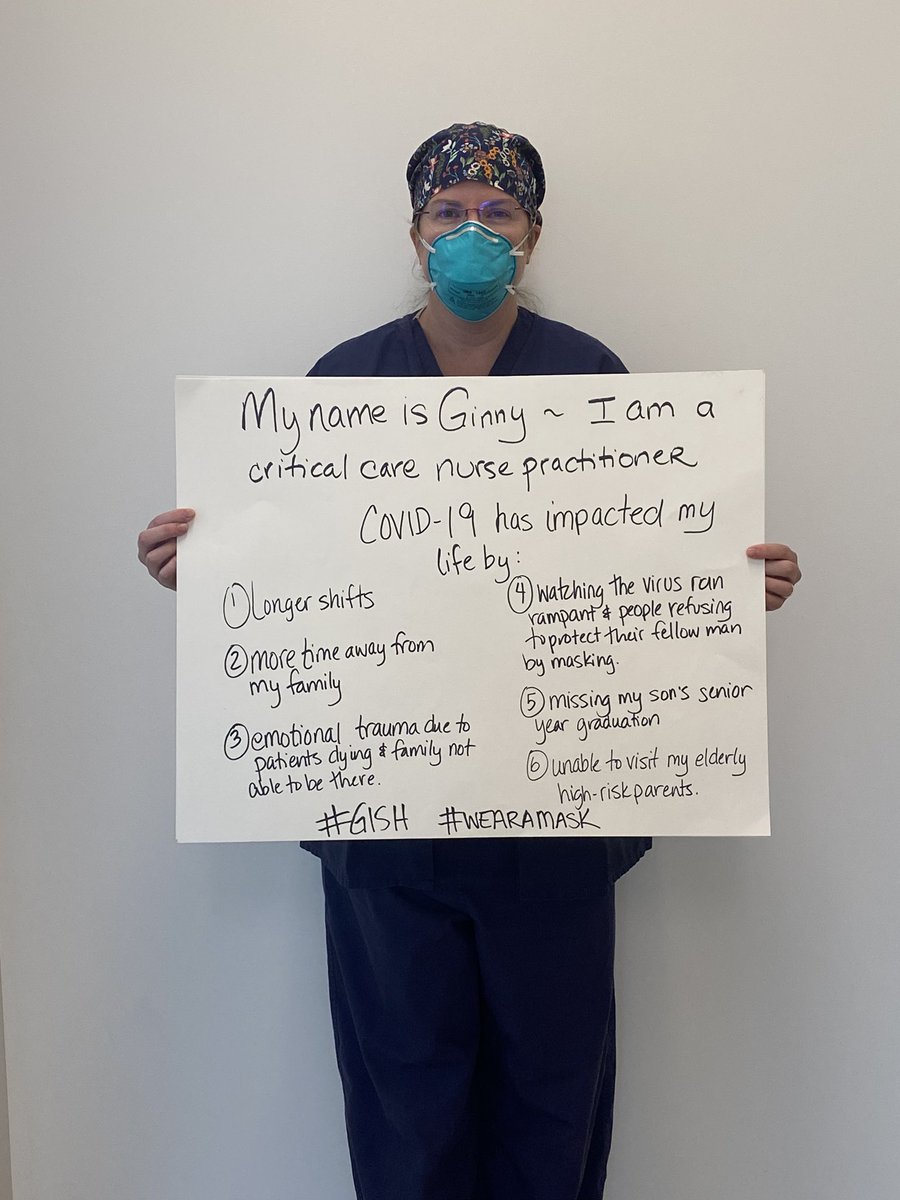 My name is Ginny ~ I am a
critical care nurse practitioner
COVID-19 has impacted my
life by:
① Longer shifts
② more time away from
my family
③ emotional trauma due to
patients dying & family not
able to be there.
④ watching the virus run
rampant & people refusing
to protect their fellow man
by masking.
⑤ missing my son's senior
year graduation
⑥ unable to visit my elderly
high-risk parents.
#GISH #WEARAMASK